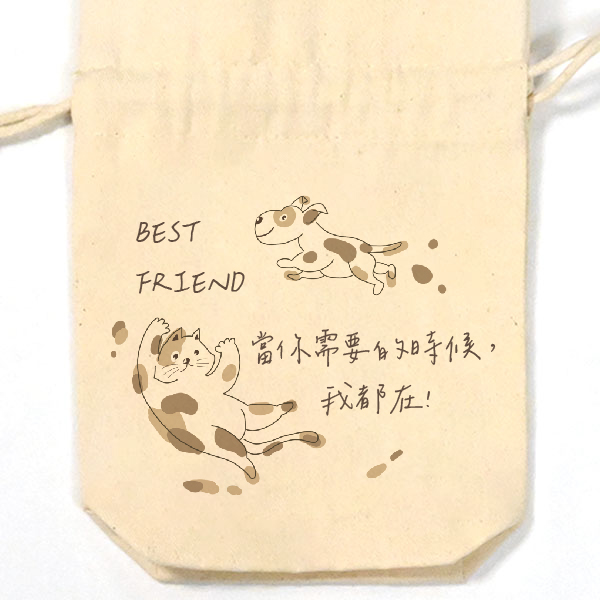 BEST
FRIEND
當你需要的時候，
我都在!